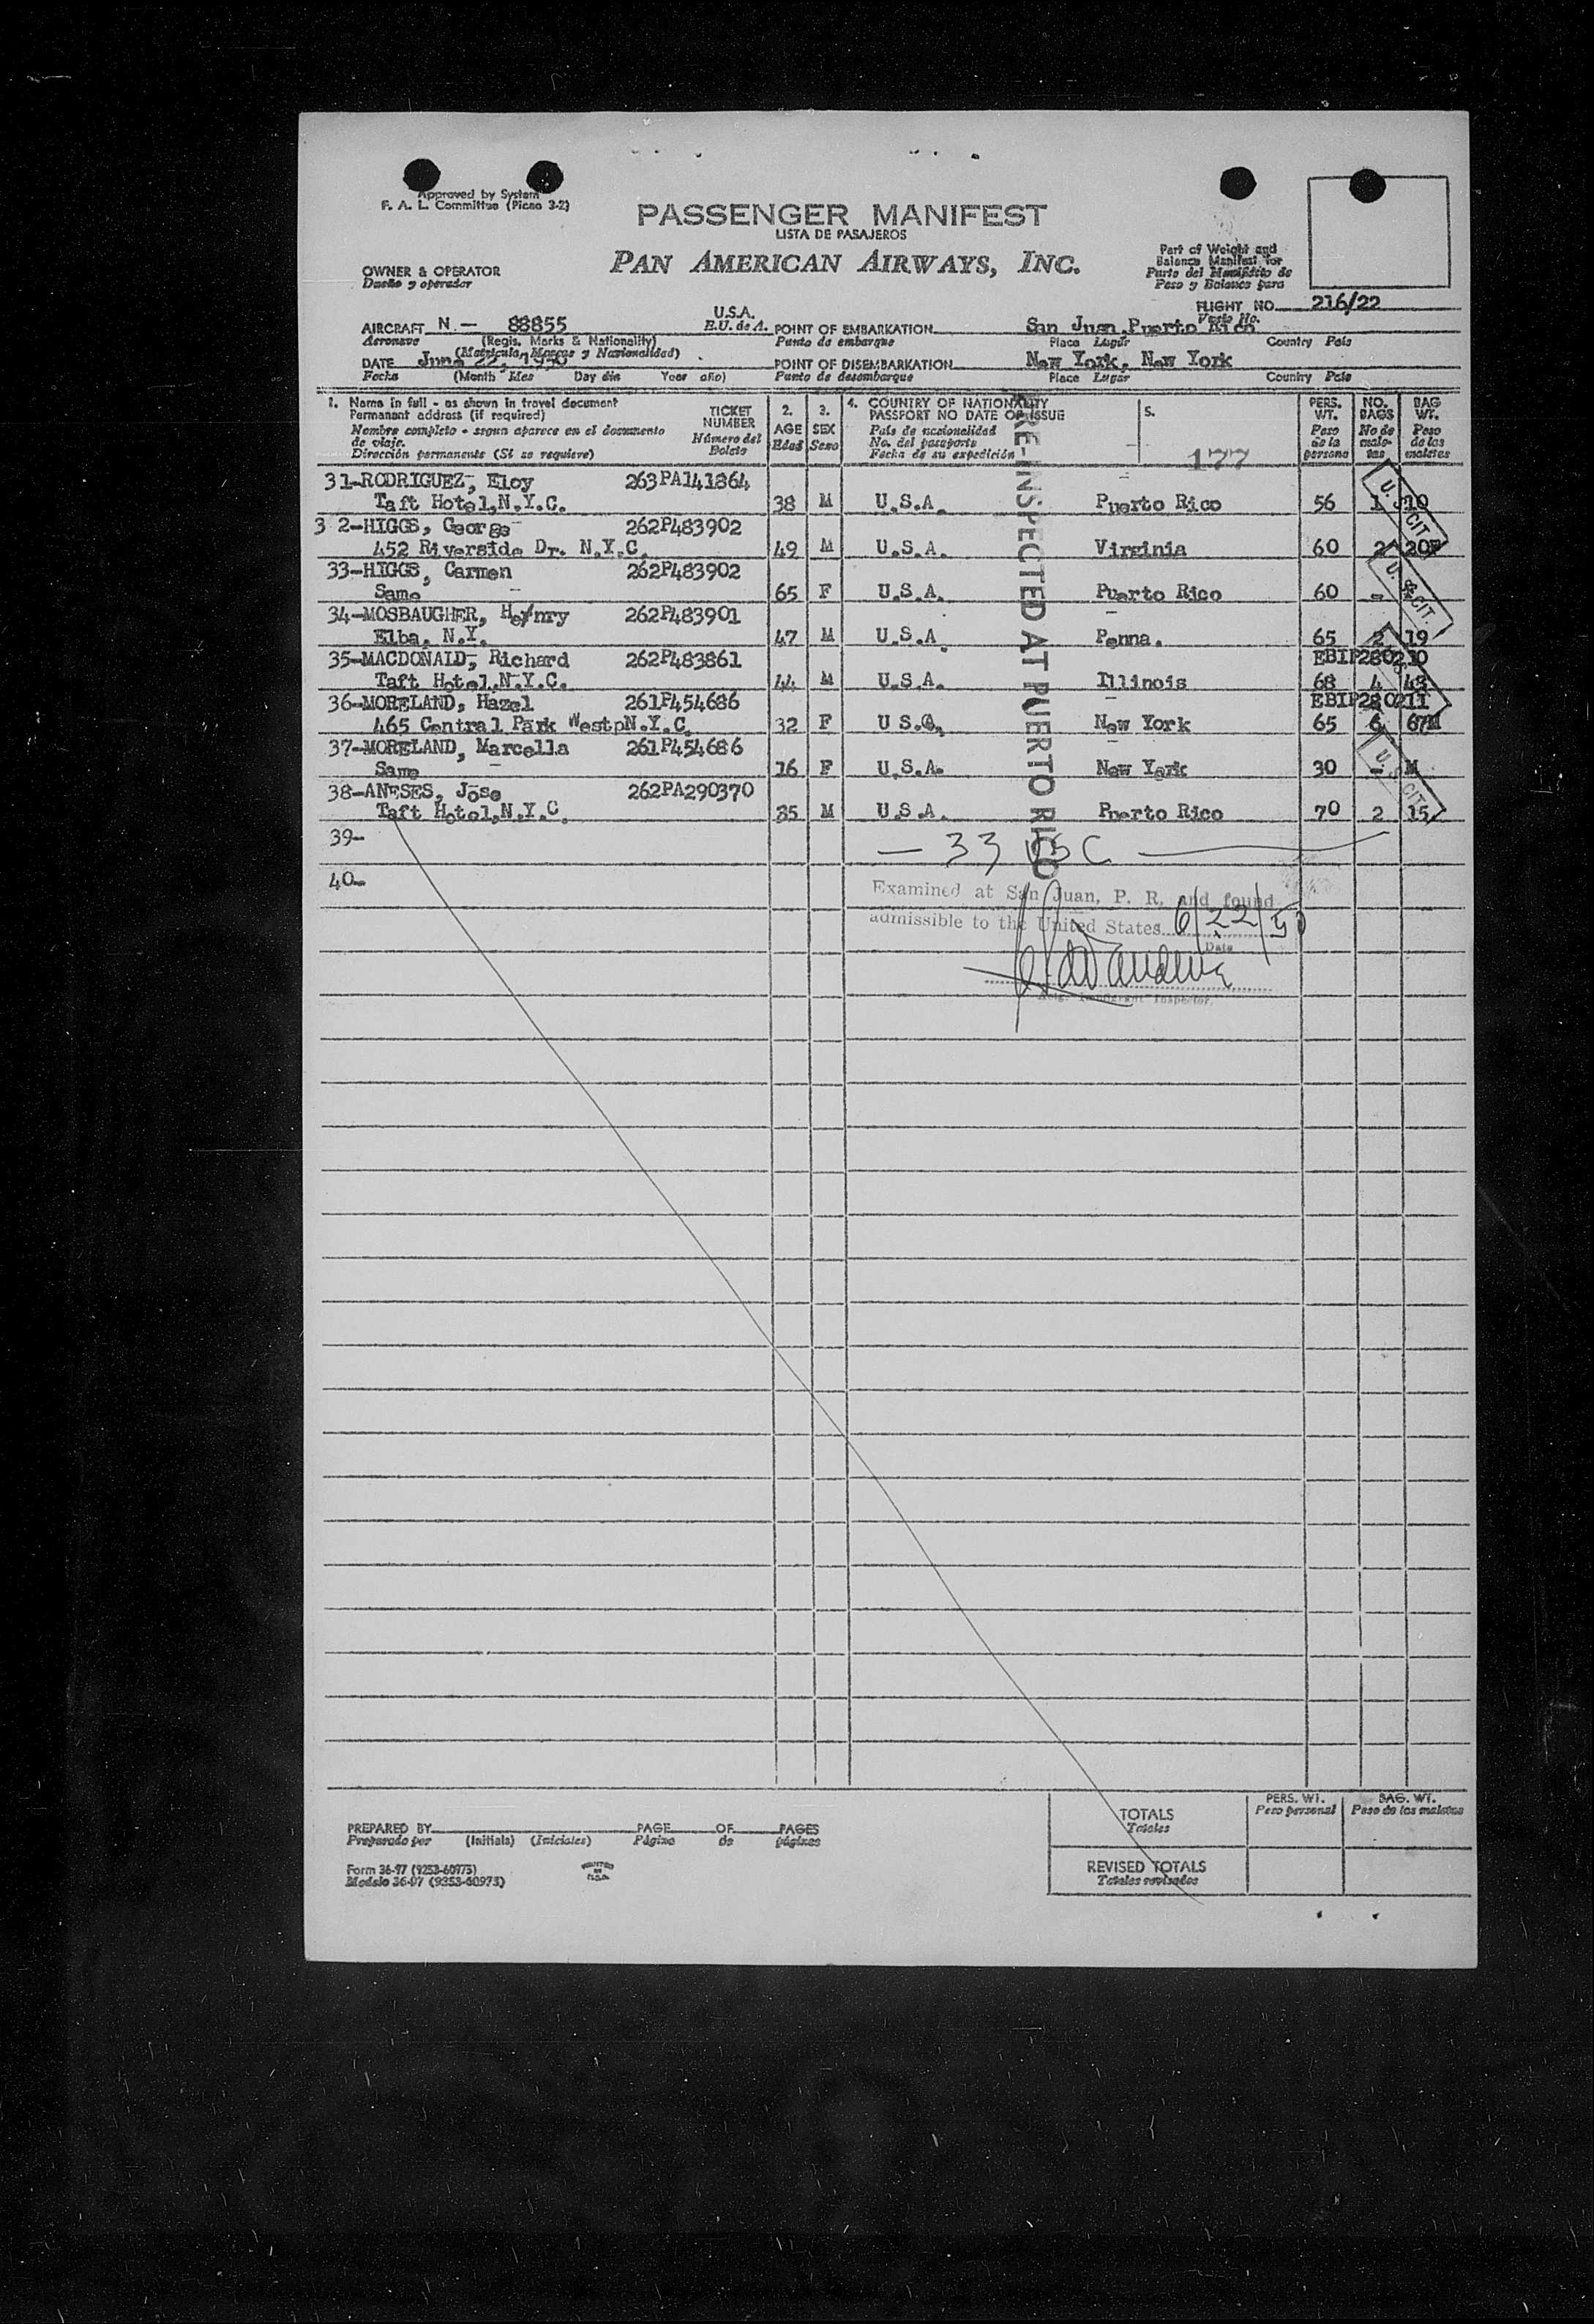 Approved by System
F. A. L. Committee (Picao 3-2)
PASSENGER MANIFEST
LISTA DE PASAJEROS
PAN AMERICAN AIRWAYS, INC.
Part of Weight and
Balance Manifest for
Parte del Manifiesto de
Peso y Balance para
OWNER & OPERATOR
Dueño y operador
FLIGHT NO. 216/22
Vuelo No.
AIRCRAFT N - 88855 U.S.A. POINT OF EMBARKATION San Juan, Puerto Rico
Aeronave (Regis. Marks & Nationality) E.U. de A. Punto de embarque Place Lugar Country Pais
(Matricula, Marcas y Nacionalidad)
DATE June 22, 1950 POINT OF DISEMBARKATION New York, New York
Fecha (Month Mes Day dia Year año) Punto de desembarque Place Lugar Country Pais
1. Name in full - as shown in travel document
Permanent address (if required)
Nombre completo - segun aparece en el documento
de viaje.
Dirección permanente (Si se requiere)
TICKET
NUMBER
Número del
Boleto
2.
AGE
Edad
3.
SEX
Sexo
4. COUNTRY OF NATIONALITY
PASSPORT NO DATE OF ISSUE
Pais de nacionalidad
No. del pasaporte
Fecha de su expedición
5.
177
PERS.
WT.
Peso
de la
persona
NO.
BAGS
No de
male-
tas
BAG
WT.
Peso
de las
maletas
PRE-INSPECTED AT PUERTO RICO
31-RODRIGUEZ, Eloy 263PA141864
Taft Hotel, N.Y.C. 38 M U.S.A. Puerto Rico 56 1 10
3 2-HIGGS, George 262P483902
452 Riverside Dr. N.Y.C. 49 M U.S.A. Virginia 60 2 20P
33-HIGGS, Carmen 262P483902
Same 65 F U.S.A. Puerto Rico 60 -
34-MOSBAUGHER, He/nry 262P483901
Elba, N.Y. 47 M U.S.A Penna. 65 2 19
35-MACDONALD, Richard 262P483861 EBIP280210
Taft Hotel, N.Y.C. 44 M U.S.A. Illinois 68 4 48
36-MORELAND, Hazel 261P454686 EBIP280211
465 Central Park WestpN.Y.C. 32 F U S.A. New York 65 6 67M
37-MORELAND, Marcella 261P454686
Same 16 F U.S.A. New York 30 - M
38-ANESES, Jose 262PA290370
Taft Hotel, N.Y.C. 35 M U.S.A. Puerto Rico 70 2 15
U. S. CIT.
U. S. CIT.
U. S. CIT.
39-
— 33 USC —
40-
Examined at San Juan, P. R. and found
admissible to the United States 6/22/50
Date
Immigrant Inspector
PREPARED BY PAGE OF PAGES
Preparado por (Initials) (Iniciales) Página de páginas
Form 36-97 (9253-60973)
Modelo 36-97 (9353-60973)
PRINTED
IN
U.S.A.
PERS. WT.
Peso personal
BAG. WT.
Peso de las maletas
TOTALS
Totales
REVISED TOTALS
Totales revisados